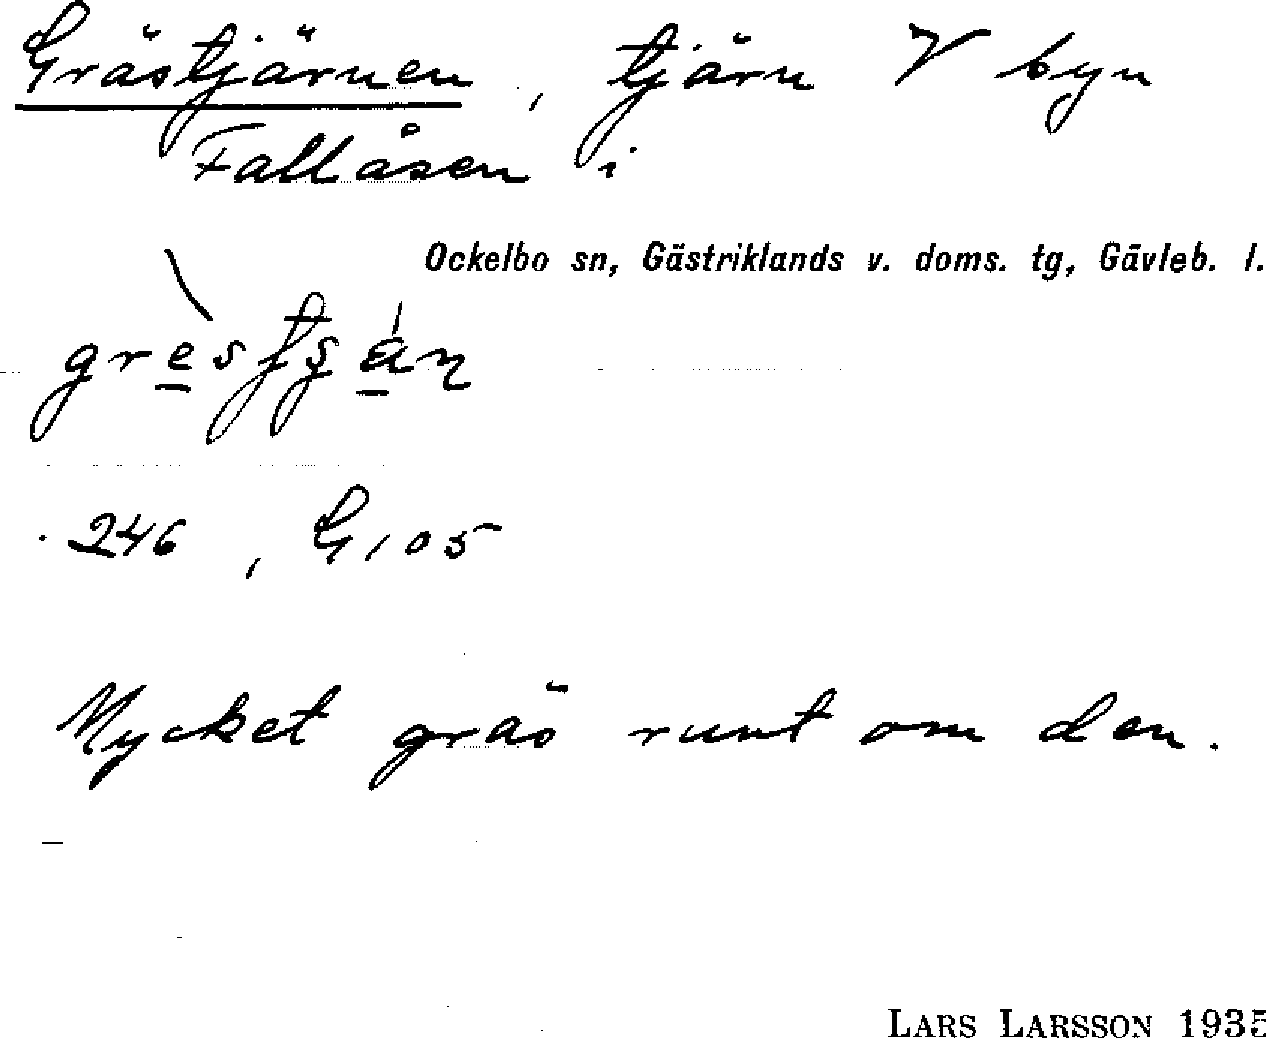 Grästjärnen, tjärn V byn
Fallåsen i
Ockelbo sn, Gästriklands v. doms. tg, Gävleb. l.
246, G, 05
Mycket gräs runt om den.
LARS LARSSON 1935